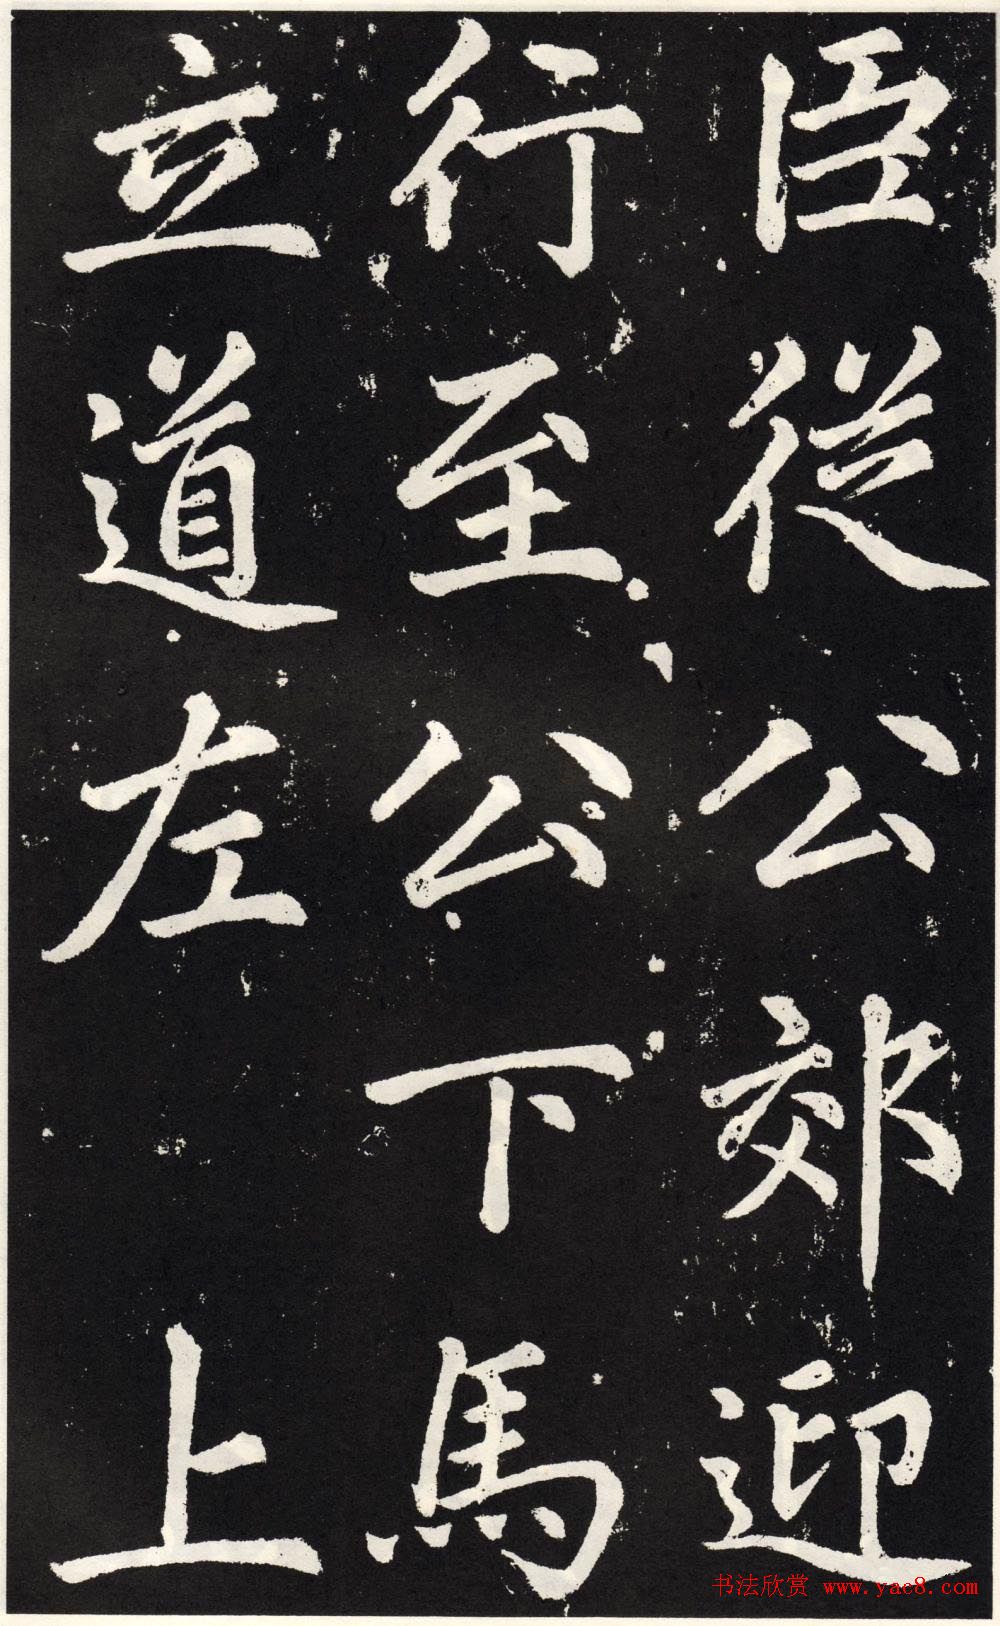 臣從公郊迎
行至公下馬
立道左上
书法欣赏 www.yac8.com